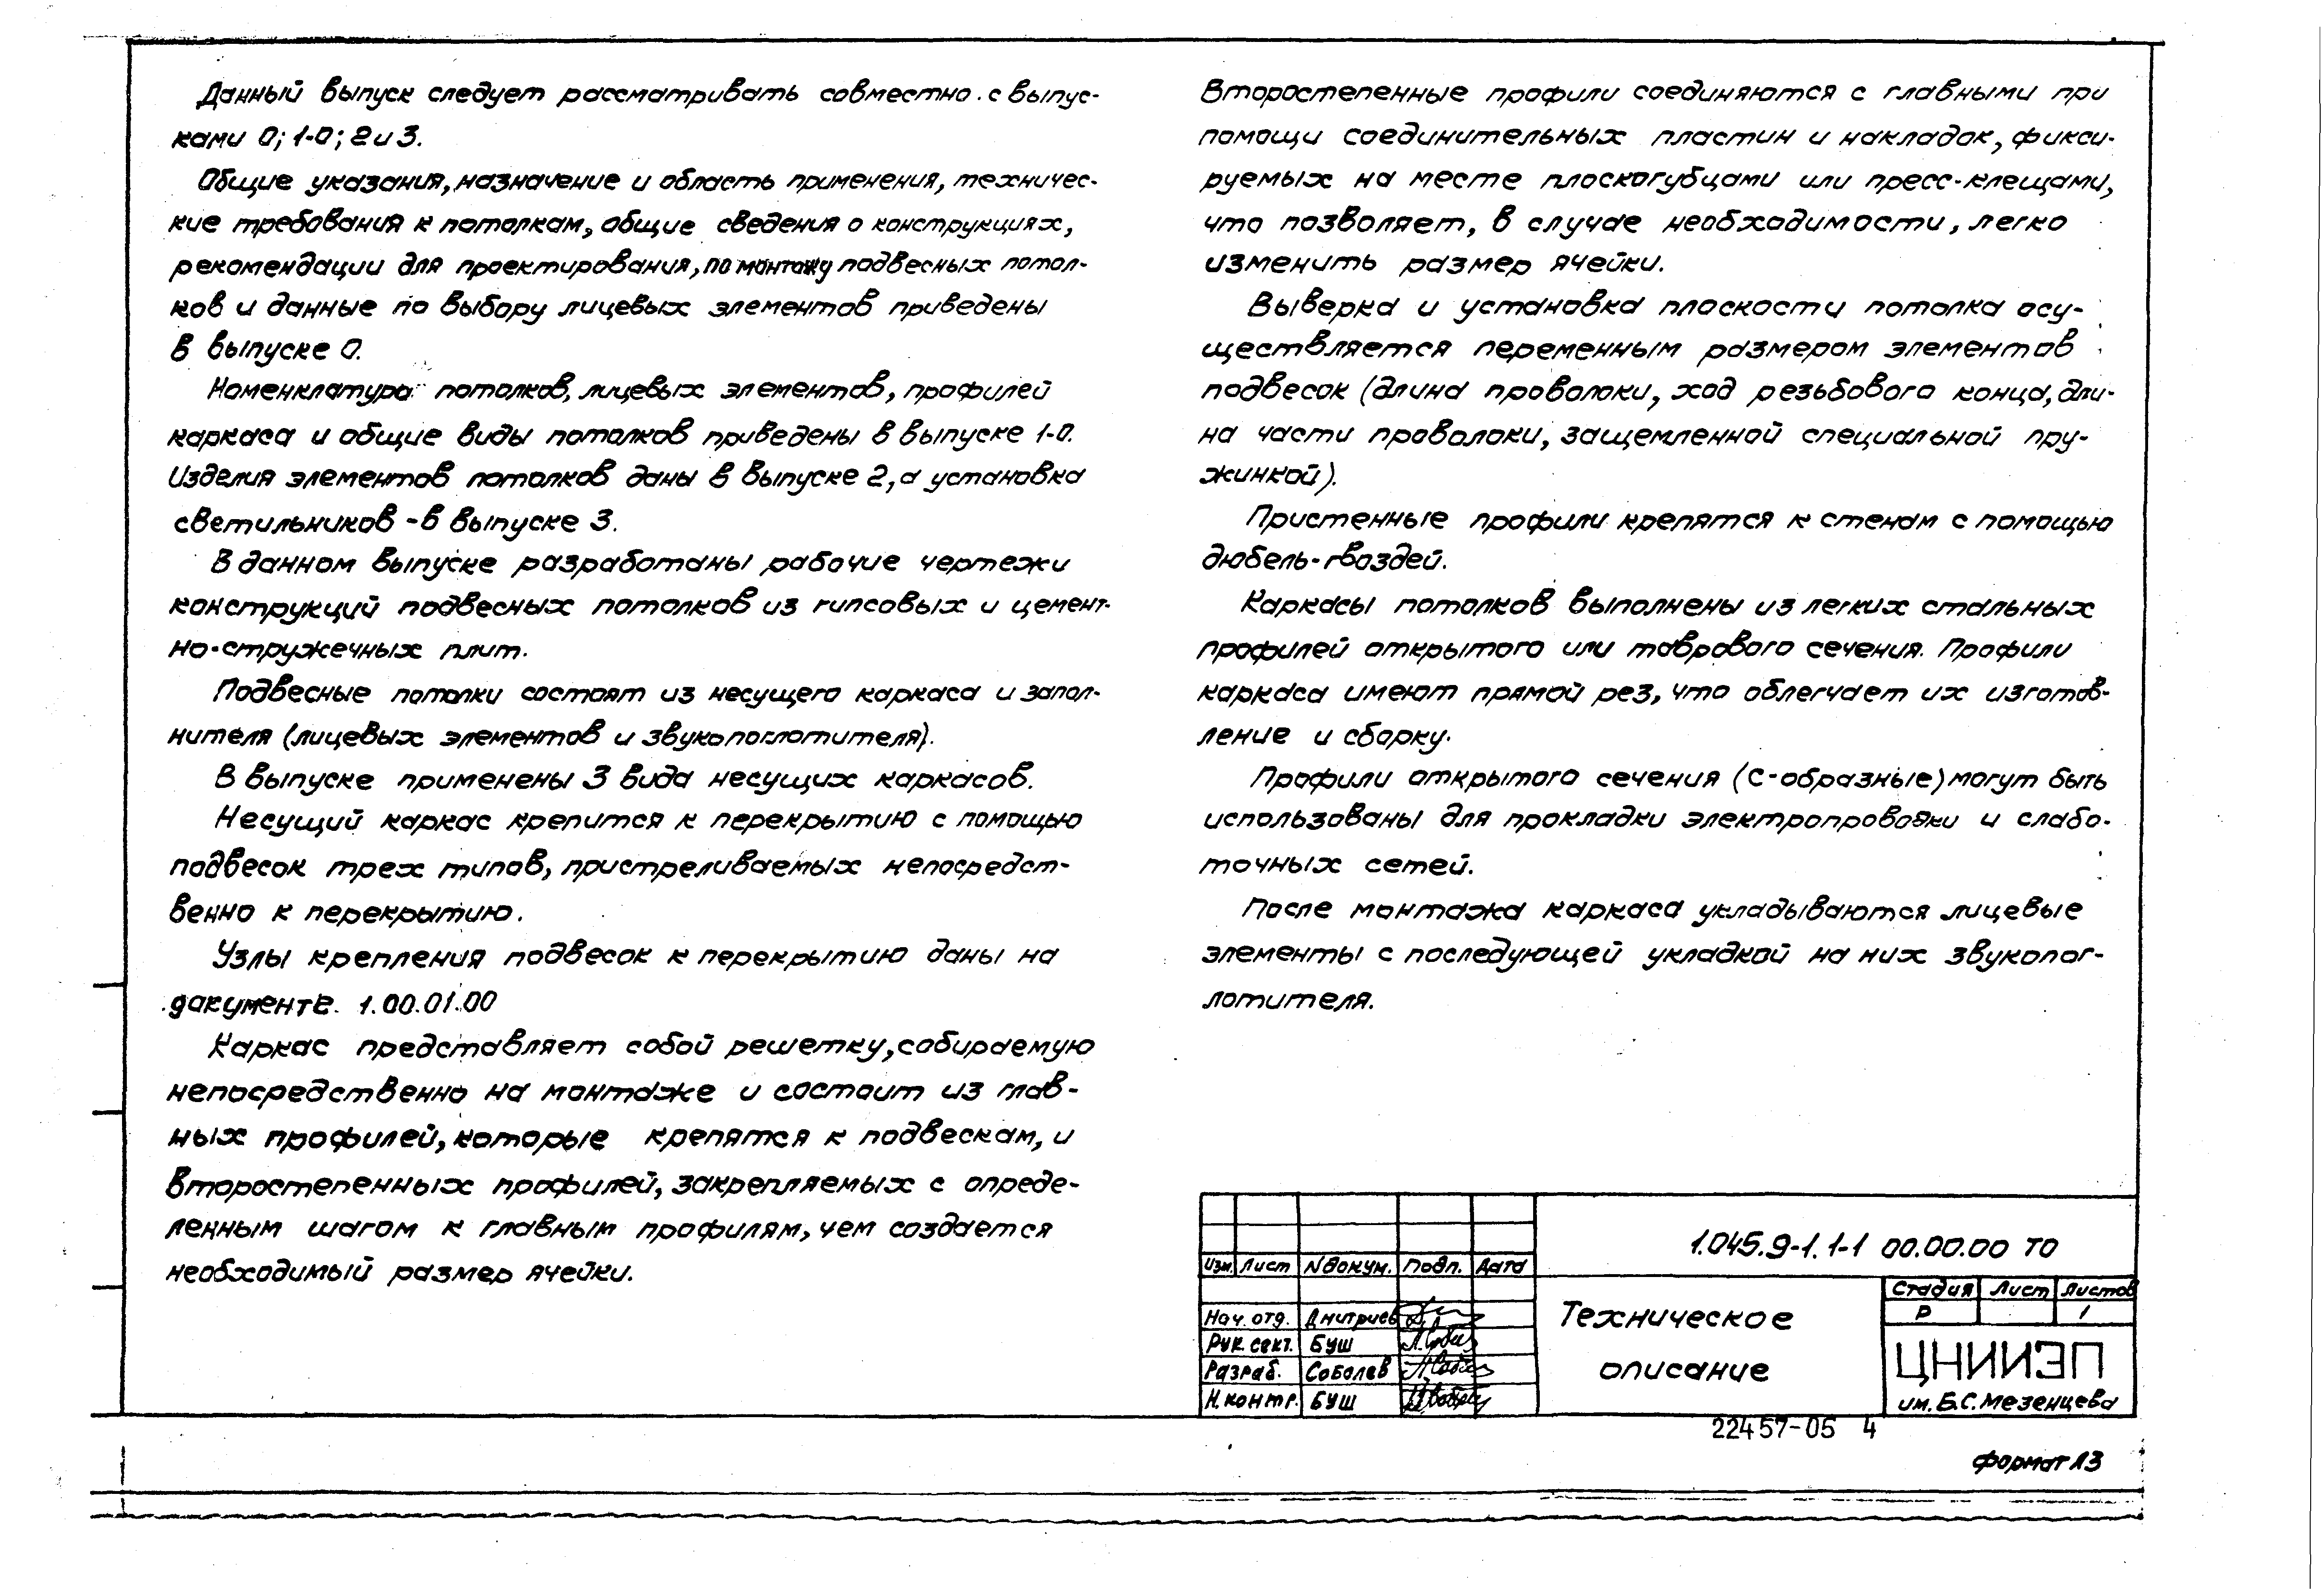 Данный выпуск следует рассматривать совместно с выпус-
ками 0; 1-0; 2 и 3.
Общие указания, назначение и область применения, техничес-
кие требования к потолкам, общие сведения о конструкциях,
рекомендации для проектирования, по монтажу подвесных потол-
ков и данные по выбору лицевых элементов приведены
в выпуске 0.
Номенклатура потолков, лицевых элементов, профилей
каркаса и общие виды потолков приведены в выпуске 1-0.
Изделия элементов потолков даны в выпуске 2, а установка
светильников - в выпуске 3.
В данном выпуске разработаны рабочие чертежи
конструкций подвесных потолков из гипсовых и цемент-
но-стружечных плит.
Подвесные потолки состоят из несущего каркаса и запол-
нителя (лицевых элементов и звукопоглотителя).
В выпуске применены 3 вида несущих каркасов.
Несущий каркас крепится к перекрытию с помощью
подвесок трех типов, пристреливаемых непосредст-
венно к перекрытию.
Узлы крепления подвесок к перекрытию даны на
документе. 1.00.01.00
Каркас представляет собой решетку, собираемую
непосредственно на монтаже и состоит из глав-
ных профилей, которые крепятся к подвескам, и
второстепенных профилей, закрепляемых с опреде-
ленным шагом к главным профилям, чем создается
необходимый размер ячейки.
Второстепенные профили соединяются с главными при
помощи соединительных пластин и накладок, фикси-
руемых на месте плоскогубцами или пресс-клещами,
что позволяет, в случае необходимости, легко
изменить размер ячейки.
Выверка и установка плоскости потолка осу-
ществляется переменным размером элементов
подвесок (длина проволоки, ход резьбового конца, дли-
на части проволоки, защемленной специальной пру-
жинкой).
Пристенные профили крепятся к стенам с помощью
дюбель-гвоздей.
Каркасы потолков выполнены из легких стальных
профилей открытого или таврового сечения. Профили
каркаса имеют прямой рез, что облегчает их изготов-
ление и сборку.
Профили открытого сечения (С-образные) могут быть
использованы для прокладки электропроводки и слабо-
точных сетей.
После монтажа каркаса укладываются лицевые
элементы с последующей укладкой на них звукопог-
лотителя.
1.045.9-1.1-1 00.00.00 ТО
Изм. Лист N докум. Подп. Дата
Нач. отд. Дмитриев
Рук. сект. Буш
Разраб. Соболев
Н. контр. Буш
Техническое
описание
Стадия Лист Листов
Р 1
ЦНИИЭП
им. Б.С. Мезенцева
22457-05 4
Формат А3